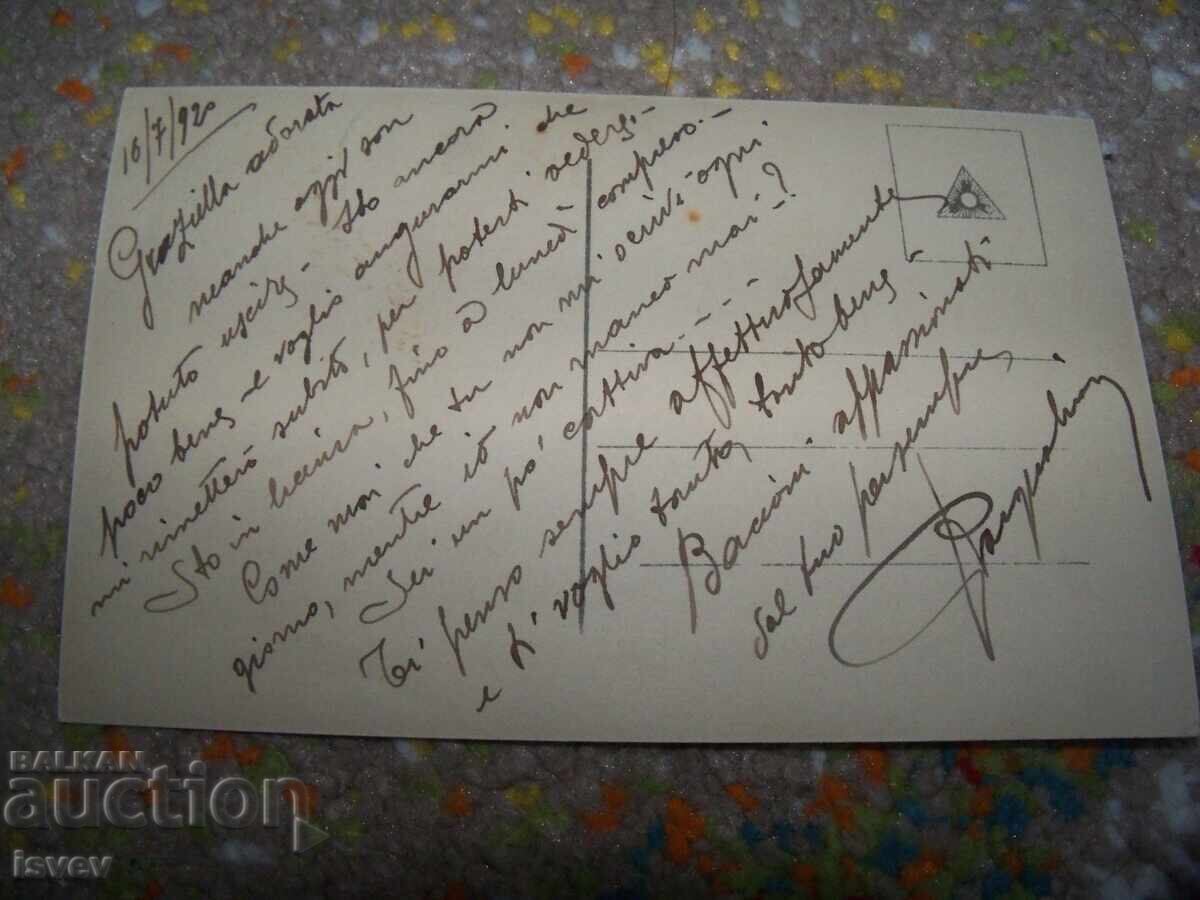 16/7/920
Graziella adorata
neanche oggi son
potuto uscire - Sto ancora
poco bene - e voglio augurarmi che
mi rimetterò subito, per poterti vedere. -
Sto in licenza, fino a lunedì compreso. -
Come mai che tu non mi scrivi ogni
giorno, mentre io non manco mai - ?
Sei un po' cattiva - - -
Ti penso sempre affettuosamente
e ti voglio tanto, tanto bene -
Bacioni appassionati
dal tuo per sempre,
BALKAN
auction
isvev